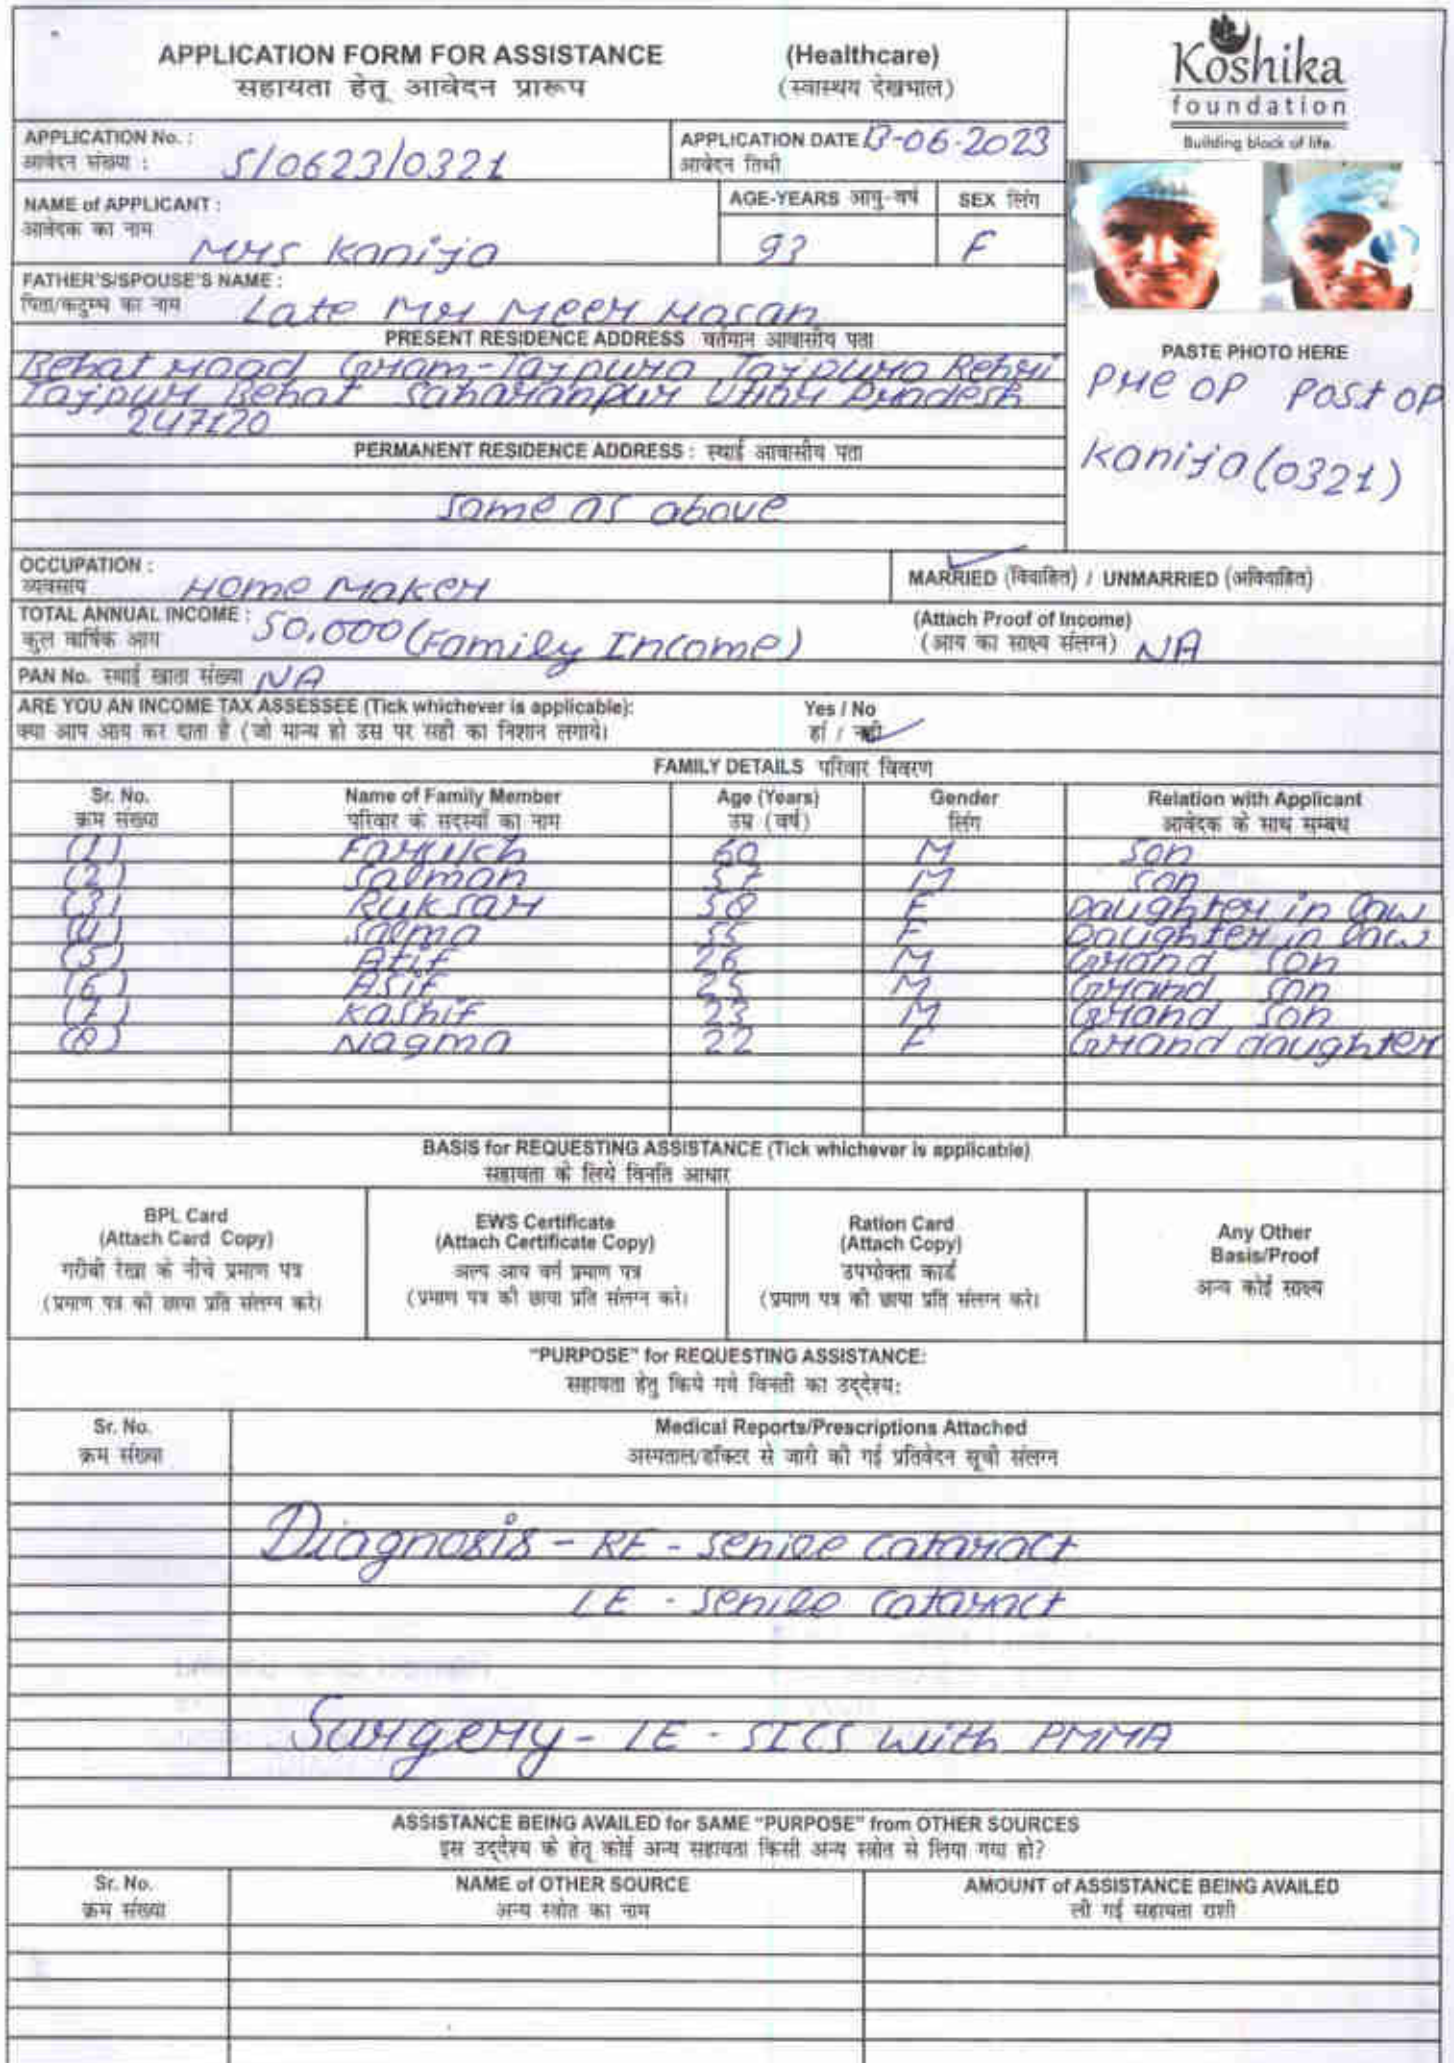 APPLICATION FORM FOR ASSISTANCE (Healthcare)
सहायता हेतू आवेदन प्रारूप (स्वास्थय देखभाल)
Koshika
foundation
Building block of life.
APPLICATION No. : S/0623/0321
आवेदन संख्या :
APPLICATION DATE 13-06-2023
आवेदन तिथी
NAME of APPLICANT : Mrs Kanija
आवेदक का नाम
AGE-YEARS आयु-वर्ष 93
SEX लिंग F
FATHER'S/SPOUSE'S NAME : Late Mr Meer Hasan
पिता/कटुम्ब का नाम
PRESENT RESIDENCE ADDRESS वर्तमान आवासीय पता
Behat road Gram-Tajpura Tajpura Rehri
Tajpur Behat Saharanpur Uttar Pradesh
247120
PASTE PHOTO HERE
Pre OP Post OP
Kanija (0321)
PERMANENT RESIDENCE ADDRESS : स्थाई आवासीय पता
Same as above
OCCUPATION : Home Maker
व्यवसाय
MARRIED (विवाहित) / UNMARRIED (अविवाहित)
TOTAL ANNUAL INCOME : 50,000 (Family Income)
कुल वार्षिक आय
(Attach Proof of Income)
(आय का साक्ष्य संलग्न) NA
PAN No. स्थाई खाता संख्या NA
ARE YOU AN INCOME TAX ASSESSEE (Tick whichever is applicable): Yes / No
क्या आप आय कर दाता है (जो मान्य हो उस पर सही का निशान लगाये। हाँ / नहीं
FAMILY DETAILS परिवार विवरण
Sr. No. Name of Family Member Age (Years) Gender Relation with Applicant
क्रम संख्या परिवार के सदस्यों का नाम उम्र (वर्ष) लिंग आवेदक के साथ सम्बध
(1) Farukh 60 M Son
(2) Salman 57 M Son
(3) Ruksar 58 F Daughter in law
(4) Salma 55 F Daughter in law
(5) Atif 26 M Grand Son
(6) Asif 25 M Grand Son
(7) Kashif 23 M Grand Son
(8) Nagma 22 F Grand daughter
BASIS for REQUESTING ASSISTANCE (Tick whichever is applicable)
सहायता के लिये विनति आधार
BPL Card
(Attach Card Copy)
गरीबी रेखा के नीचे प्रमाण पत्र
(प्रमाण पत्र की छाया प्रति संलग्न करे।
EWS Certificate
(Attach Certificate Copy)
अल्प आय वर्ग प्रमाण पत्र
(प्रमाण पत्र की छाया प्रति संलग्न करे।
Ration Card
(Attach Copy)
उपभोक्ता कार्ड
(प्रमाण पत्र की छाया प्रति संलग्न करे।
Any Other
Basis/Proof
अन्य कोई साक्ष्य
"PURPOSE" for REQUESTING ASSISTANCE:
सहायता हेतु किये गये विनती का उद्देश्य:
Sr. No. Medical Reports/Prescriptions Attached
क्रम संख्या अस्पताल/डॉक्टर से जारी की गई प्रतिवेदन सूची संलग्न
Diagnosis - RE - Senile cataract
LE - Senile cataract
Surgery - LE - SICS with PMMA
ASSISTANCE BEING AVAILED for SAME "PURPOSE" from OTHER SOURCES
इस उद्देश्य के हेतू कोई अन्य सहायता किसी अन्य स्त्रोत से लिया गया हो?
Sr. No. NAME of OTHER SOURCE AMOUNT of ASSISTANCE BEING AVAILED
क्रम संख्या अन्य स्त्रोत का नाम ली गई सहायता राशी